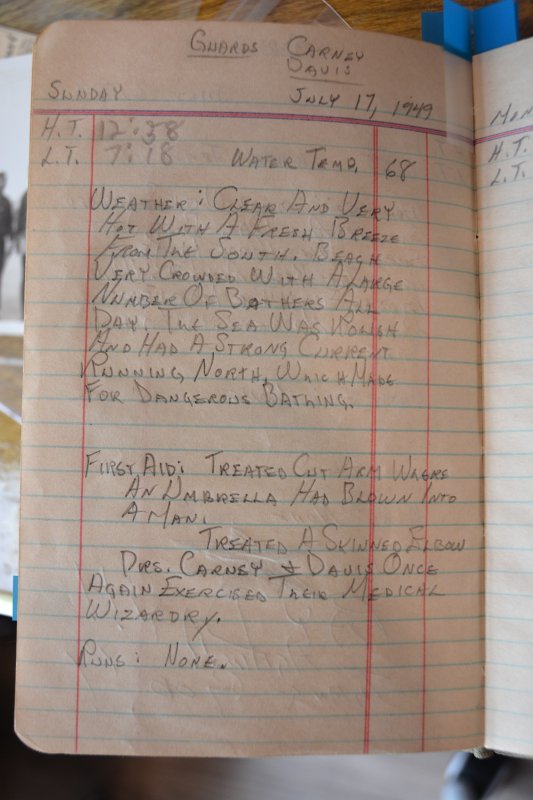 GUARDS CARNEY
DAVIS
SUNDAY JULY 17, 1949
H.T. 12:38
L.T. 7:18 WATER TEMP. 68
WEATHER: CLEAR AND VERY
HOT WITH A FRESH BREEZE
FROM THE SOUTH. BEACH
VERY CROWDED WITH A LARGE
NUMBER OF BATHERS ALL
DAY. THE SEA WAS ROUGH
AND HAD A STRONG CURRENT
RUNNING NORTH, WHICH MADE
FOR DANGEROUS BATHING.
FIRST AID: TREATED CUT ARM WHERE
AN UMBRELLA HAD BLOWN INTO
A MAN.
TREATED A SKINNED ELBOW
DRS. CARNEY & DAVIS ONCE
AGAIN EXERCISED THEIR MEDICAL
WIZARDRY.
RUNS: NONE.
MON
H.T.
L.T.